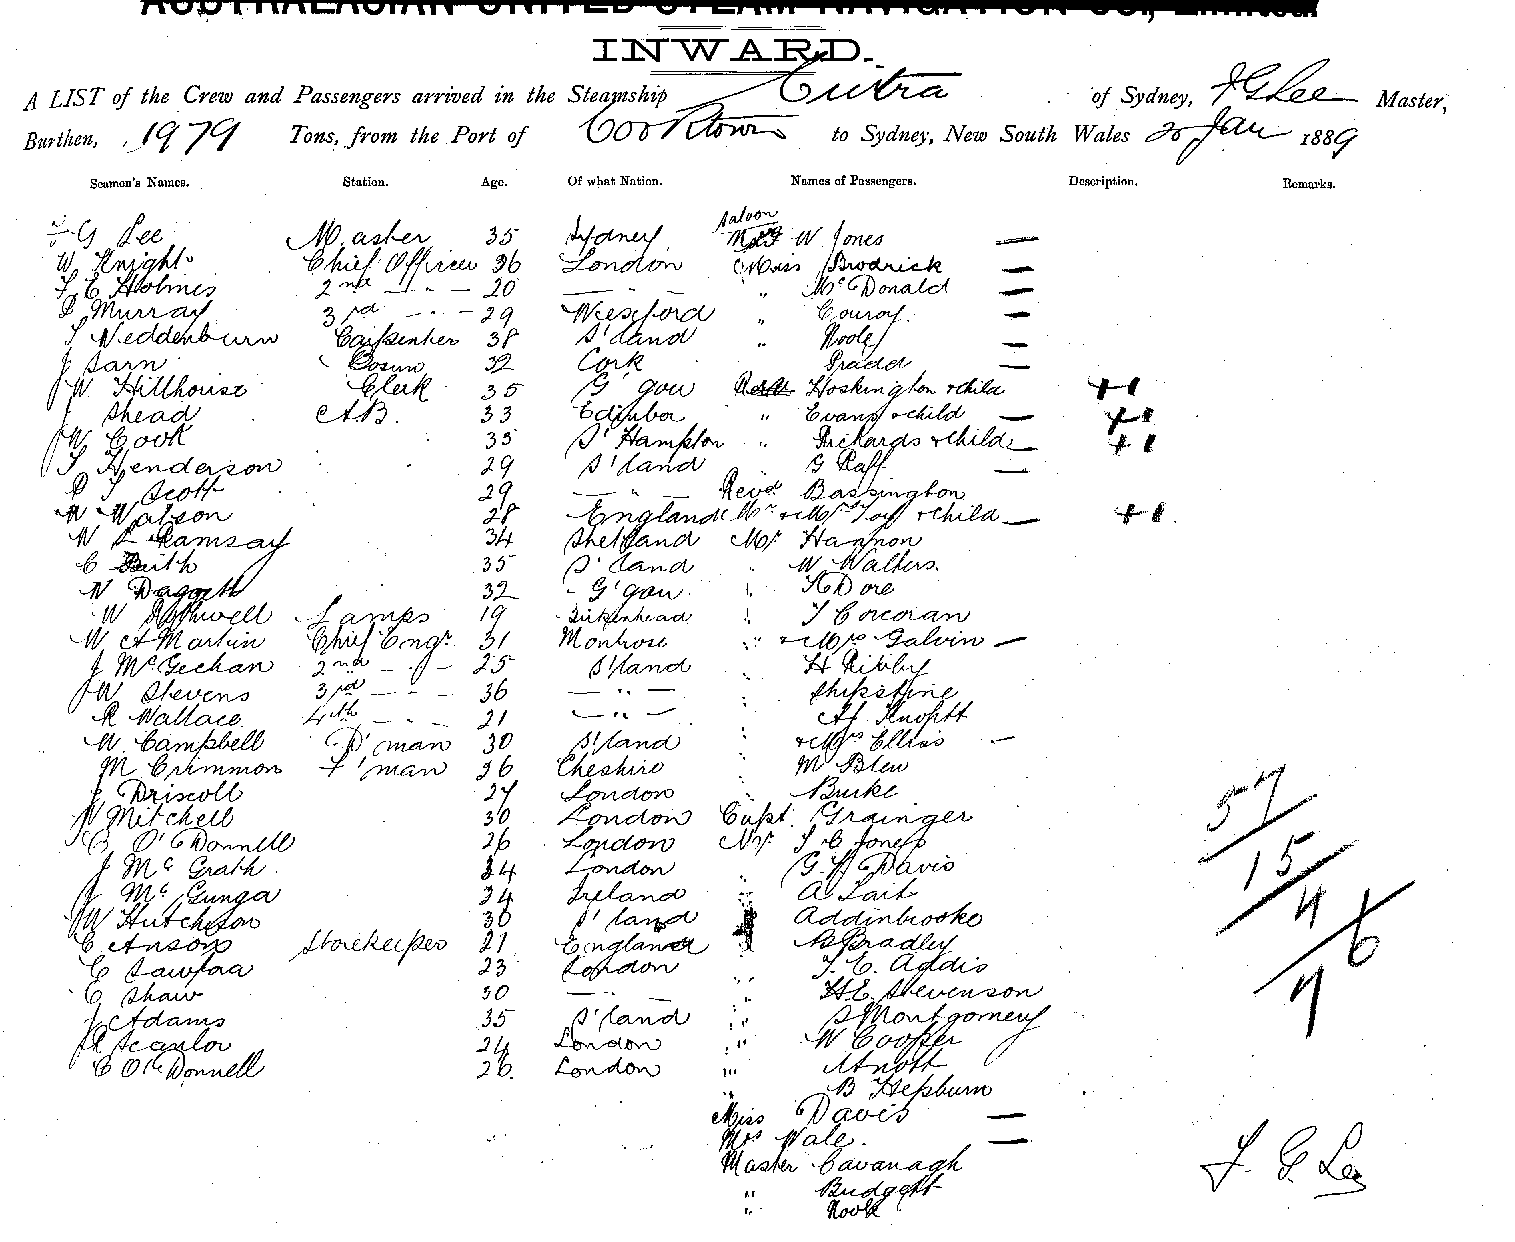 AUSTRALASIAN UNITED STEAM NAVIGATION CO., Limited.
INWARD.
A LIST of the Crew and Passengers arrived in the Steamship Cintra of Sydney, F G Lee Master,
Burthen, 1979 Tons, from the Port of Cooktown to Sydney, New South Wales 20 Jan 1889
Seamen's Names. Station. Age. Of what Nation. Names of Passengers. Description. Remarks.
Saloon
F G Lee Master 35 Sydney W Jones —
W Knight Chief Officer 36 London Miss Brodrick —
T C Holmes 2nd — " — 20 — " — " McDonald —
D Murray 3rd — " — 29 Wexford " Conroy —
T Weddenburn Carpenter 38 S'land "
J Sarn Bosun 32 Cork —
J W Hillhouse Clerk 35 G'gow Hoskington & child +1
J Shead A.B. 33 Edinbor " Evans & child — +1
J W Cook 35 S'Hampton " Richards & child — +1
T Henderson 29 S'land " G Raff —
D T Scott 29 — " — Revd Bassington
W Watson 28 England Mr & Mrs & child — +1
W Ramsay 34 Shetland Mr Hannon
C 35 S'land W Walters
N 32 G'gow " Dore
W Rothwell Lamps 19 Birkenhead " T Corcoran
W A Martin Chief Engr 31 Montrose " & Mrs Galvin —
J McGechan 2nd — " — 25 S'land H Ribby
J W Stevens 3rd — " — 36 — " —
R Wallace 4th — " — 21 — " —
W Campbell D'man 30 S'land " & Mrs Elliss —
M Crimmon F'man 26 Cheshire M Blew
J Driscoll 27 London " Burke
W Mitchell 30 London Capt. Grainger
C O'Donnell 26 London Mr T C Jones
J McGrath 24 London G H Davis
J McGunga 24 Ireland " A Tait
J W Hutcheson 30 S'land Addinbrooke
C Anson Storekeeper 21 England B Bradley
C 23 London " T. E. Addis
C Shaw 30 — " — " H E Stevenson
J Adams 35 S'land " S Montgomery
24 London " W Cooper
C O'Donnell 26. London " Arnott
" B Hepburn
Miss Davis —
Mrs Wale. —
Master Cavanagh
" Budgett
"
57
15
4
6
7
F. G. Lee